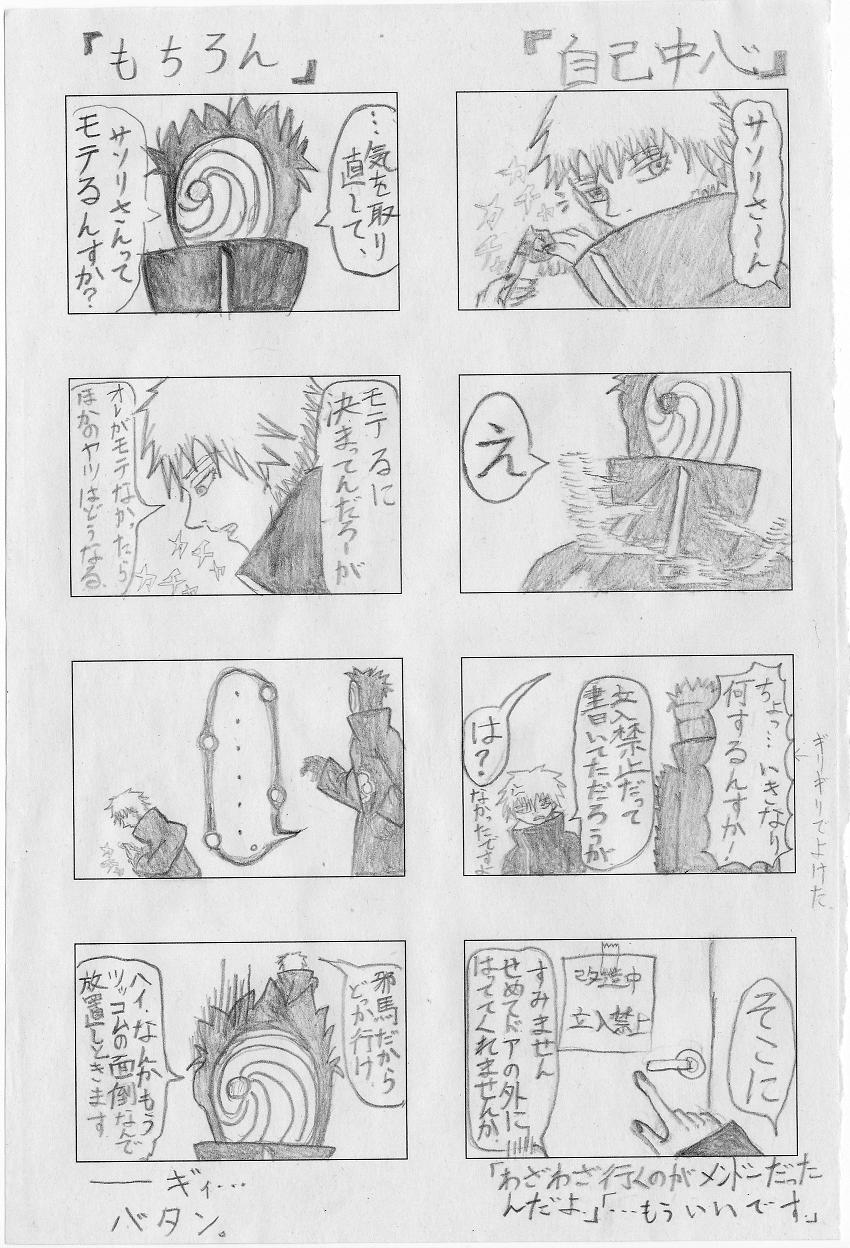 『自己中心』
サソリさ〜ん
カチャ
カチャ
え
ちょっ…いきなり
何するんすか！
ギリギリでよけた
立入禁止だって
書いてただろうが
は？
なかったですよ
そこに
改造中
立入禁止
すみません
せめてドアの外に
はっててくれませんか
「わざわざ行くのがメンドーだった
んだよ」「…もういいです。」
『もちろん』
…気を取り
直して、
サソリさんって
モテるんすか？
モテるに
決まってんだろーが
オレがモテなかったら
ほかのヤツはどうなる
カチャ
カチャ
カチャ
邪馬だから
どっか行け
ハイ、なんかもう
ツッコムの面倒なんで
放置しときます
──ギィ…
バタン。